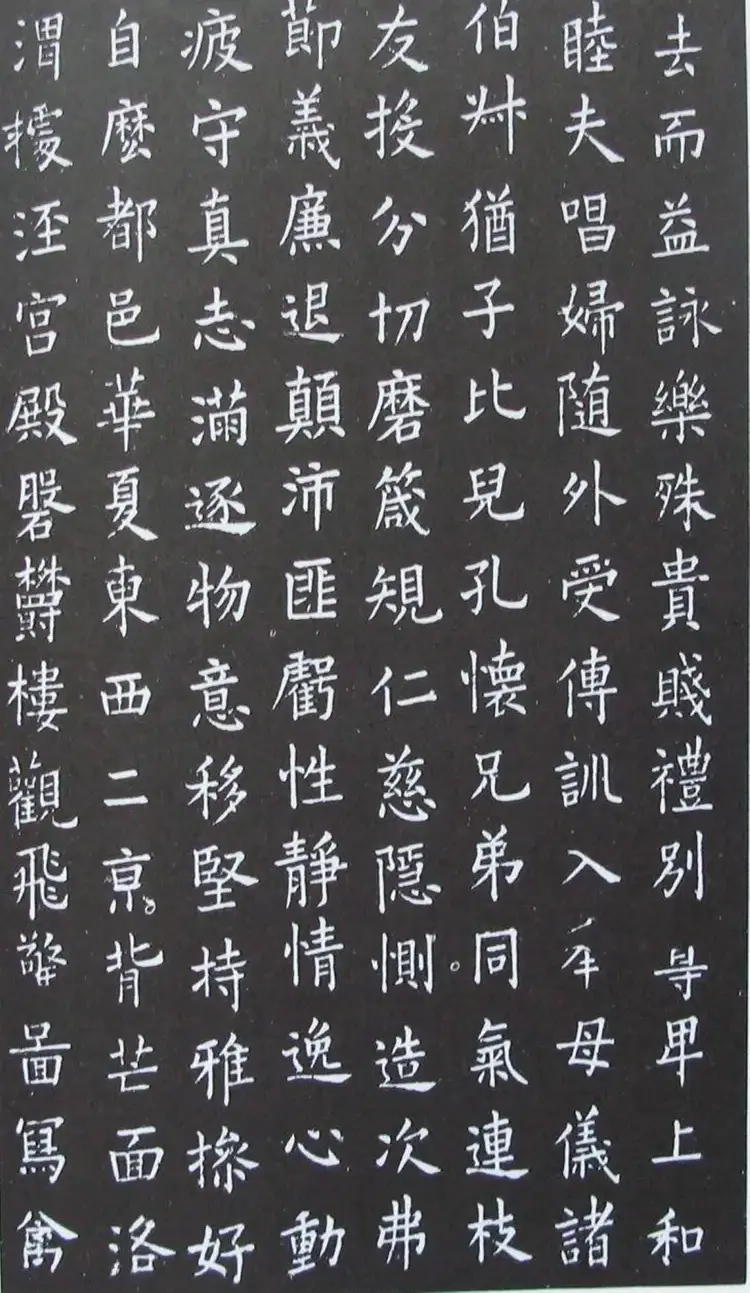 去而益詠樂殊貴賤禮別尊卑上和
睦夫唱婦隨外受傅訓入奉母儀諸
伯叔猶子比兒孔懷兄弟同氣連枝
友投分切磨箴規仁慈隱惻造次弗
節義廉退顛沛匪虧性靜情逸心動
疲守真志滿逐物意移堅持雅操好
自縻都邑華夏東西二京背芒面洛
渭據涇宮殿磐欝樓觀飛驚啚寫禽